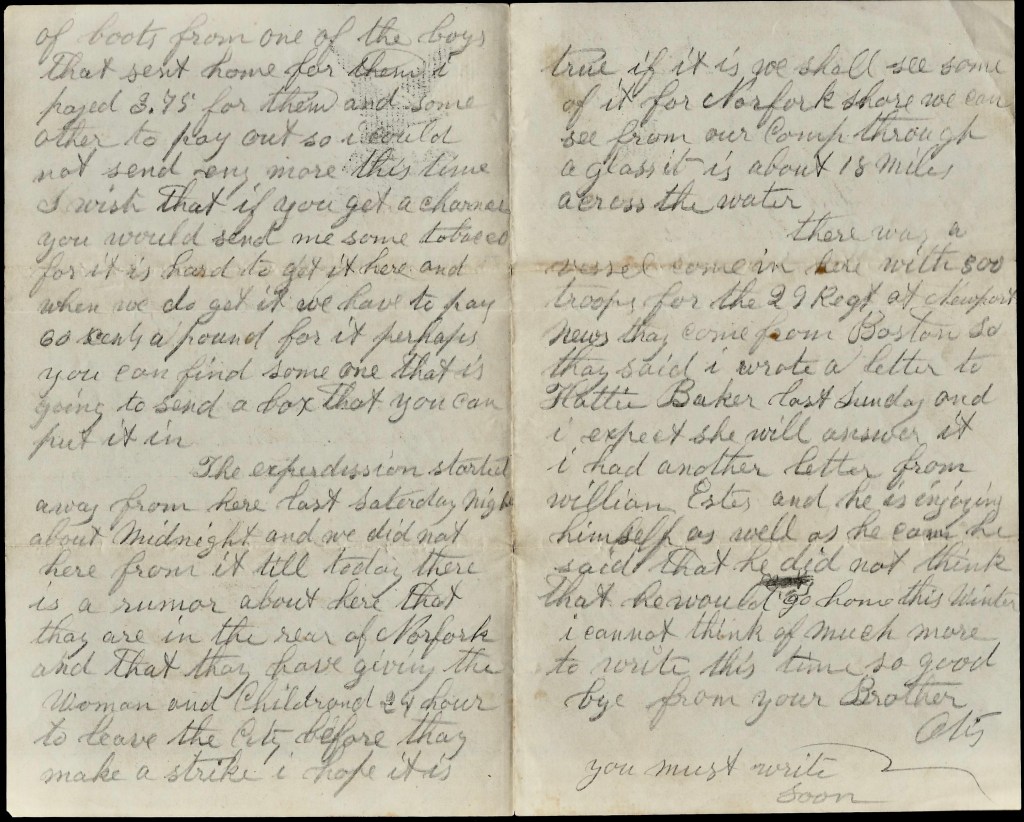 of boots from one of the boys
That sent home for them i
payed 3.75 for them and some
other to pay out so i could
not send eny more this time
I wish That if you get a charnce
you would send me some tobacco
for it is hard to get it here and
when we do get it we have to pay
60 cents a pound for it perhaps
you can find some one that is
going to send a box That you can
put it in
The experdission started
away from here last Saterday Night
about Midnight and we did not
here from it till today there
is a rumor about here that
thay are in the rear of Norfork
and that thay have giving the
Woman and Childrand 24 hour
to leave the City before thay
make a strike i hope it is
true if it is we shall see some
of it for Norfork shore we can
see from our Camp through
a glass it is about 18 Miles
across the water
there was a
vessel come in here with 800
troops for the 29 Regt at Newport
News thay come from Boston so
thay said i wrote a letter to
Hattie Baker last Sunday and
i expect she will answer it
i had another letter from
willian Estes and he is enjoying
himself as well as he can he
said that he did not think
That he would go home this Winter
i cannot think of much more
to write this time so good
bye from your Brother
Otis
you must write
soon